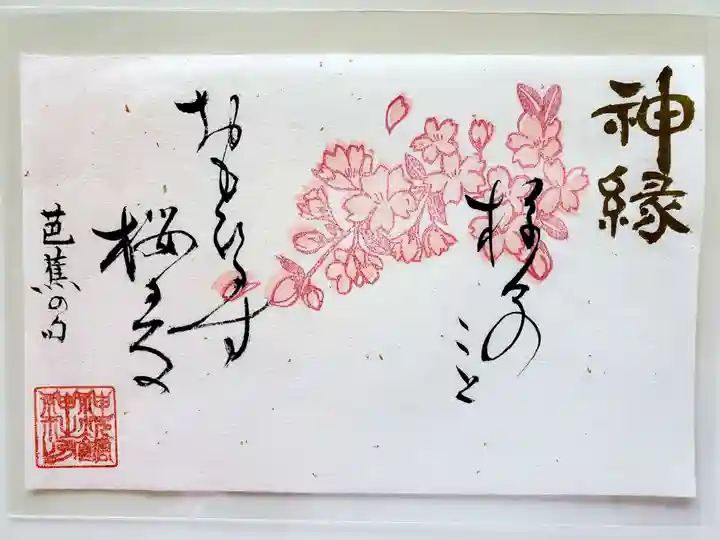 神縁
様々の
こと
おもひ出す
桜かな
芭蕉の句